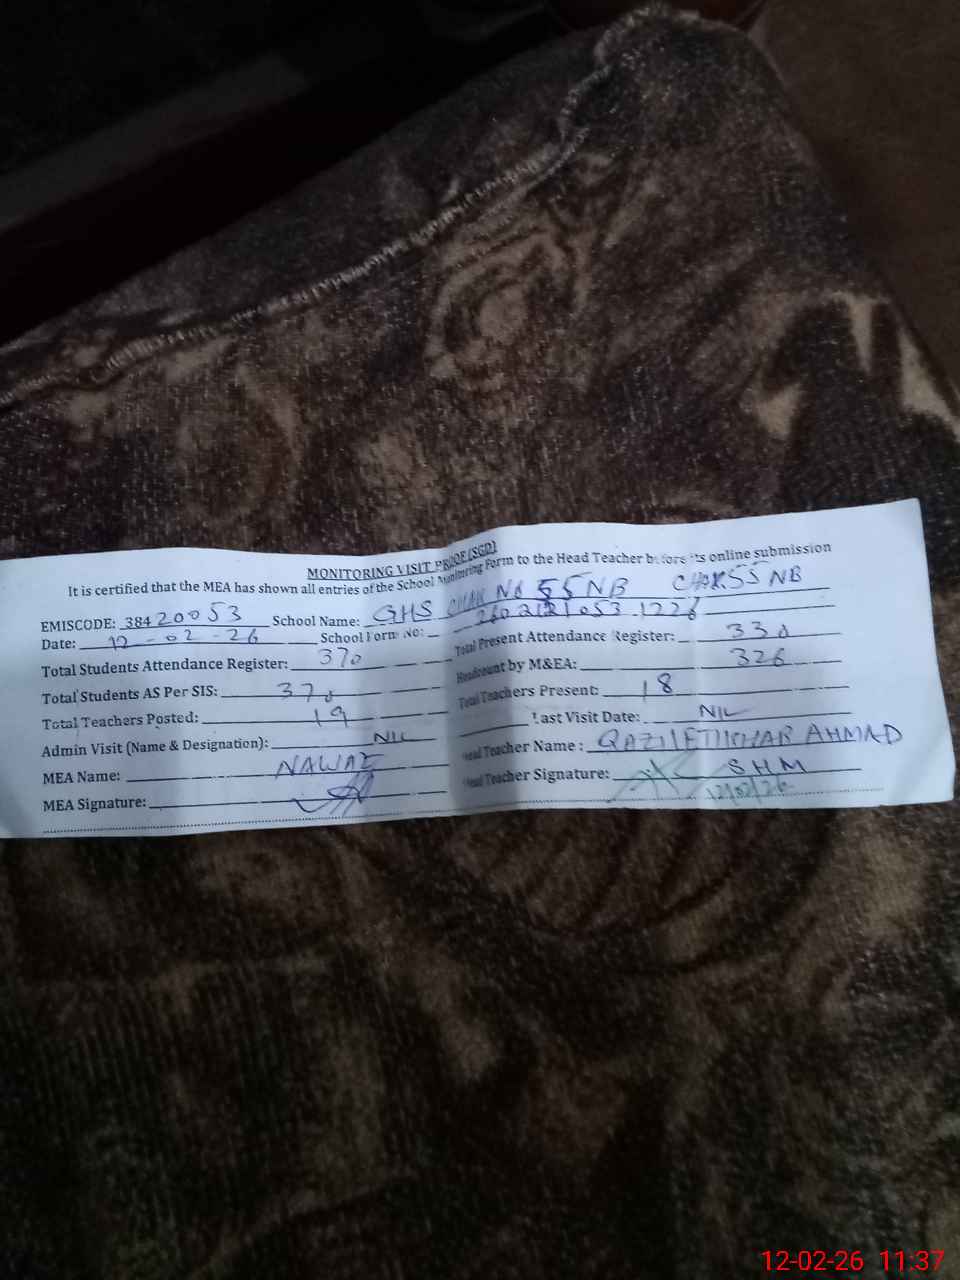 MONITORING VISIT PROOF (SGD)
It is certified that the MEA has shown all entries of the School Monitoring Form to the Head Teacher before its online submission
EMISCODE: 38420053 School Name: GHS CHAK NO 55 NB CHAK 55 NB
Date: 12-02-26 School Form No:
Total Students Attendance Register: 370 Total Present Attendance Register: 330
Total Students AS Per SIS: 370 Headcount by M&EA: 326
Total Teachers Posted: 19 Total Teachers Present: 18
Admin Visit (Name & Designation): NIL Last Visit Date: NIL
MEA Name: NAWAZ Head Teacher Name: QAZI IFTIKHAR AHMAD
MEA Signature: Head Teacher Signature: SHM
12/02/26
12-02-26 11:37